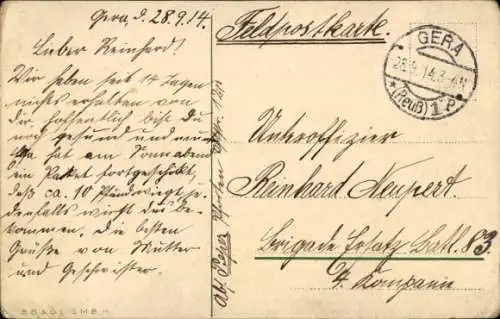 Gera, d. 28.9.14.
Lieber Reinhard!
Wir haben seit 14 Tagen
nichts erhalten von
dir hoffentlich bist Du
noch gesund und
hat am Sonnabend
ein Paket fortgeschikt,
daß ca. 10 Pfund wiegt je-
denfalls wirst du be-
kommen. Die besten
Grüße von Mutter
und Geschwister.
Feldpostkarte.
GERA
28.9.14.3-4N
*(Reuß) 1 P.
Unteroffizier
Reinhard Neupert.
Brigade Ersatz Batl. 83.
4. Kompanie